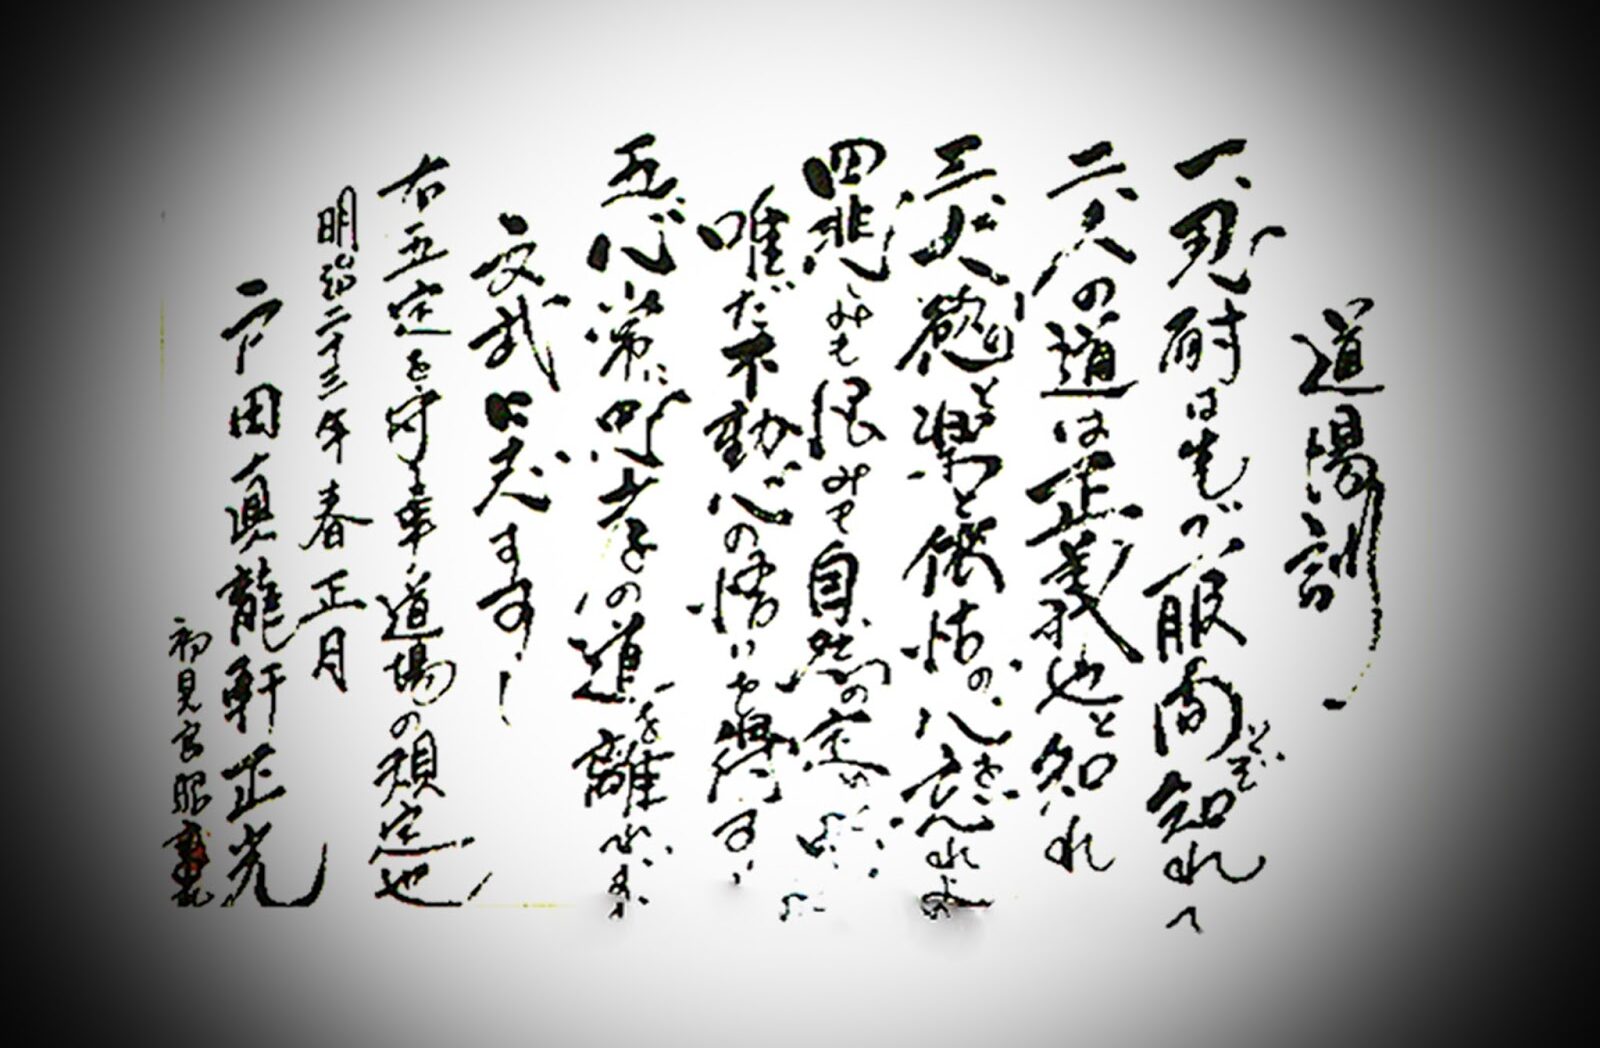 道場訓
一、忍耐は先づ一服の間ぞと知れ
二、人の道は正義也と知れ
三、大慾と楽と依怙の心を忘れよ
四、悲しみも恨みも自然の定め
唯だ不動心の悟りを得す
五、心常に 道を離れ
文武に志す
右五定を守る事道場の規定也
明治二十三年 春 正月
戸田真龍軒正光
初見良昭